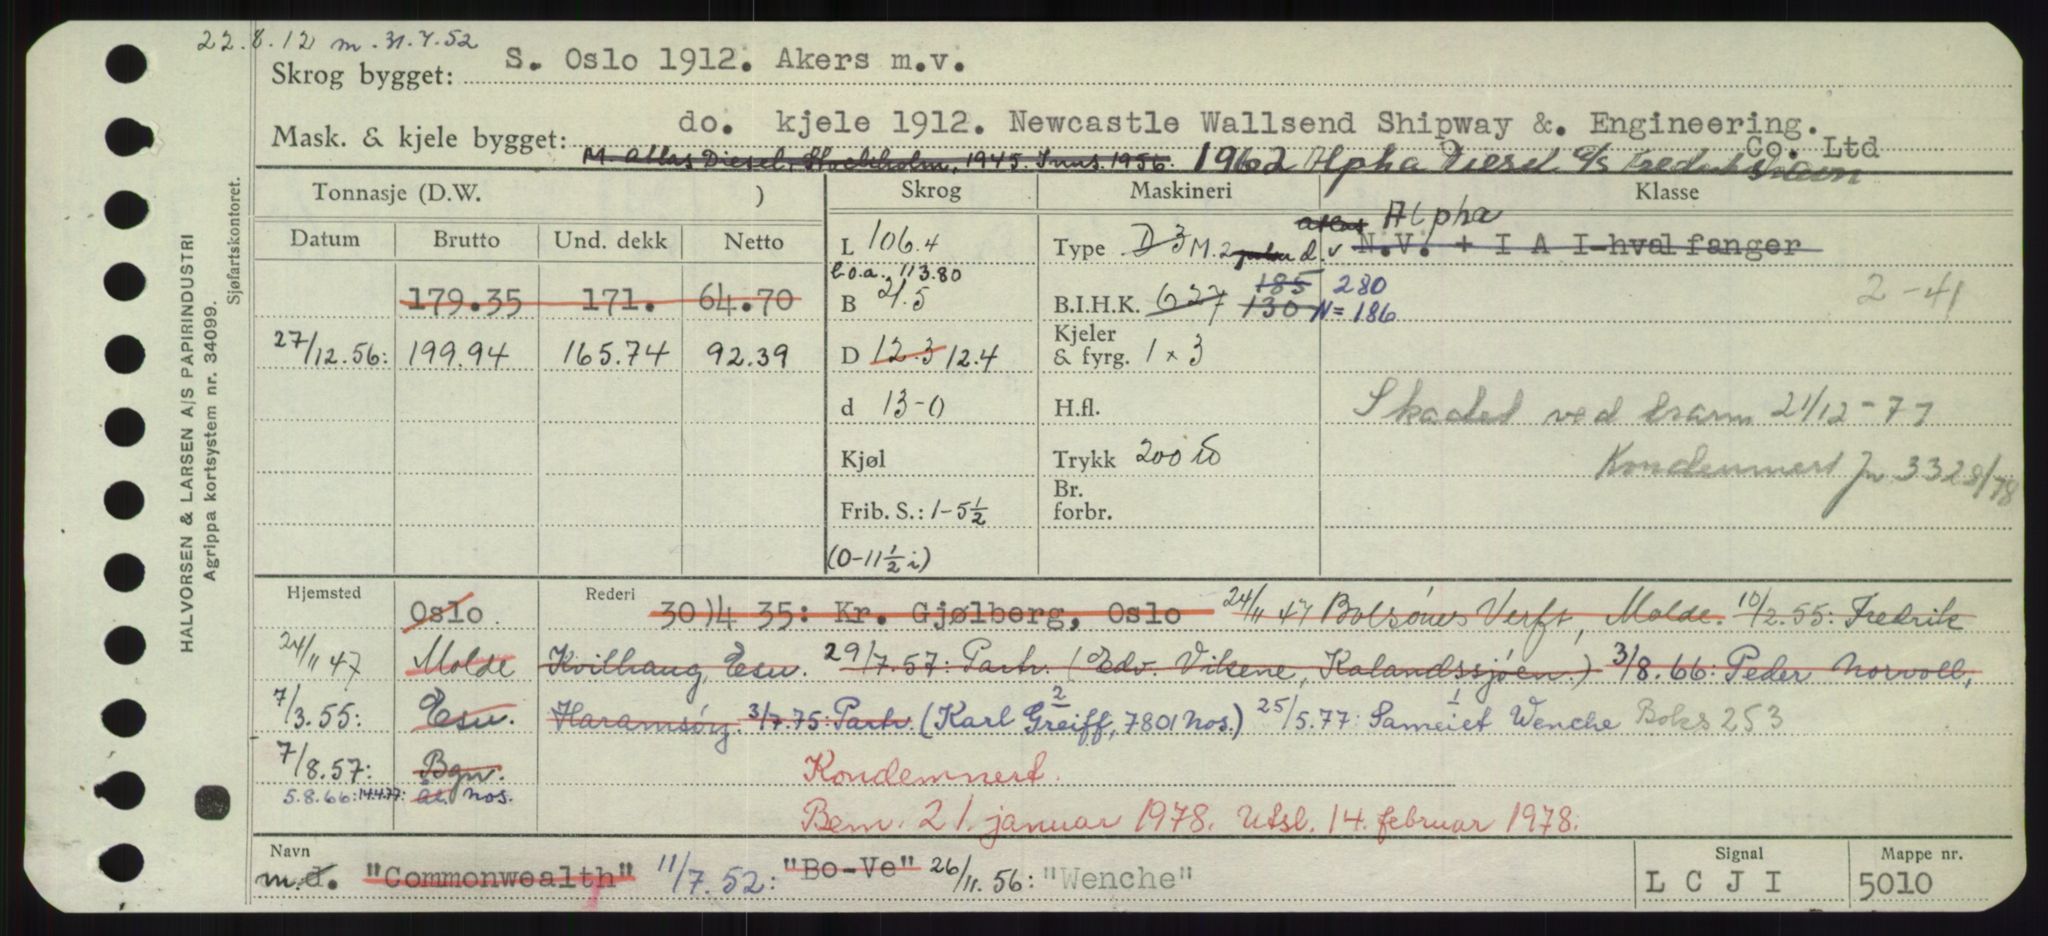 22.8.12 m. 31.7.52
Skrog bygget: S. Oslo 1912. Akers m.v.
Mask. & kjele bygget: do. kjele 1912. Newcastle Wallsend Shipway &. Engineering. Co. Ltd
M. Atlas Diesel, Stockholm, 1945. Inns. 1956. 1962 Alpha Diesel a/s
Tonnasje (D.W. ) Skrog Maskineri Klasse
Datum Brutto Und. dekk Netto
L 106.4
l.o.a. 113.80
Type D 3 M. 2 d.v Atlas Alpha
N.V. + I A I-hvalfanger
179.35 171. 64.70
B 21.5
B.I.H.K. 627 185 130 280 N= 186
2-41
27/12.56: 199.94 165.74 92.39
D 12.3 12.4
Kjeler & fyrg. 1 x 3
d 13-0
H.fl.
Skadet ved 21/12-77
Kjøl
Trykk 200 lb
Kondemnert Jn 3328/78
Frib. S.: 1-5 1/2
(0-11 1/2 i)
Br. forbr.
Hjemsted Rederi
Oslo 30/4 35: Kr. Gjølberg, Oslo 24/11 47 Bolsønes Verft, Molde. 10/2.55: Fredrik
24/11 47 Molde Kvilhaug, Esu. 29/7.57: Partr. (Edv. Vikene, Kalandssjøen.) 3/8.66: Peder Norvoll,
7/3.55: Esu. Haramsøy. 3/7.75: Partr. (Karl Greiff, 7801 Nos.) 25/5.77: Sameiet Wenche Boks 253
2 1
7/8.57: Bgn. Kondemnert.
5.8.66: 14.4.77: Ål. Nos.
Bem. 21. januar 1978. Utsl. 14. februar 1978.
Navn Signal Mappe nr.
m.d. "Commonwealth" 11/7.52: "Bo-Ve" 26/11.56: "Wenche" L C J I 5010
HALVORSEN & LARSEN A/S PAPIRINDUSTRI
Agrippa kortsystem nr. 34099.
Sjøfartskontoret.